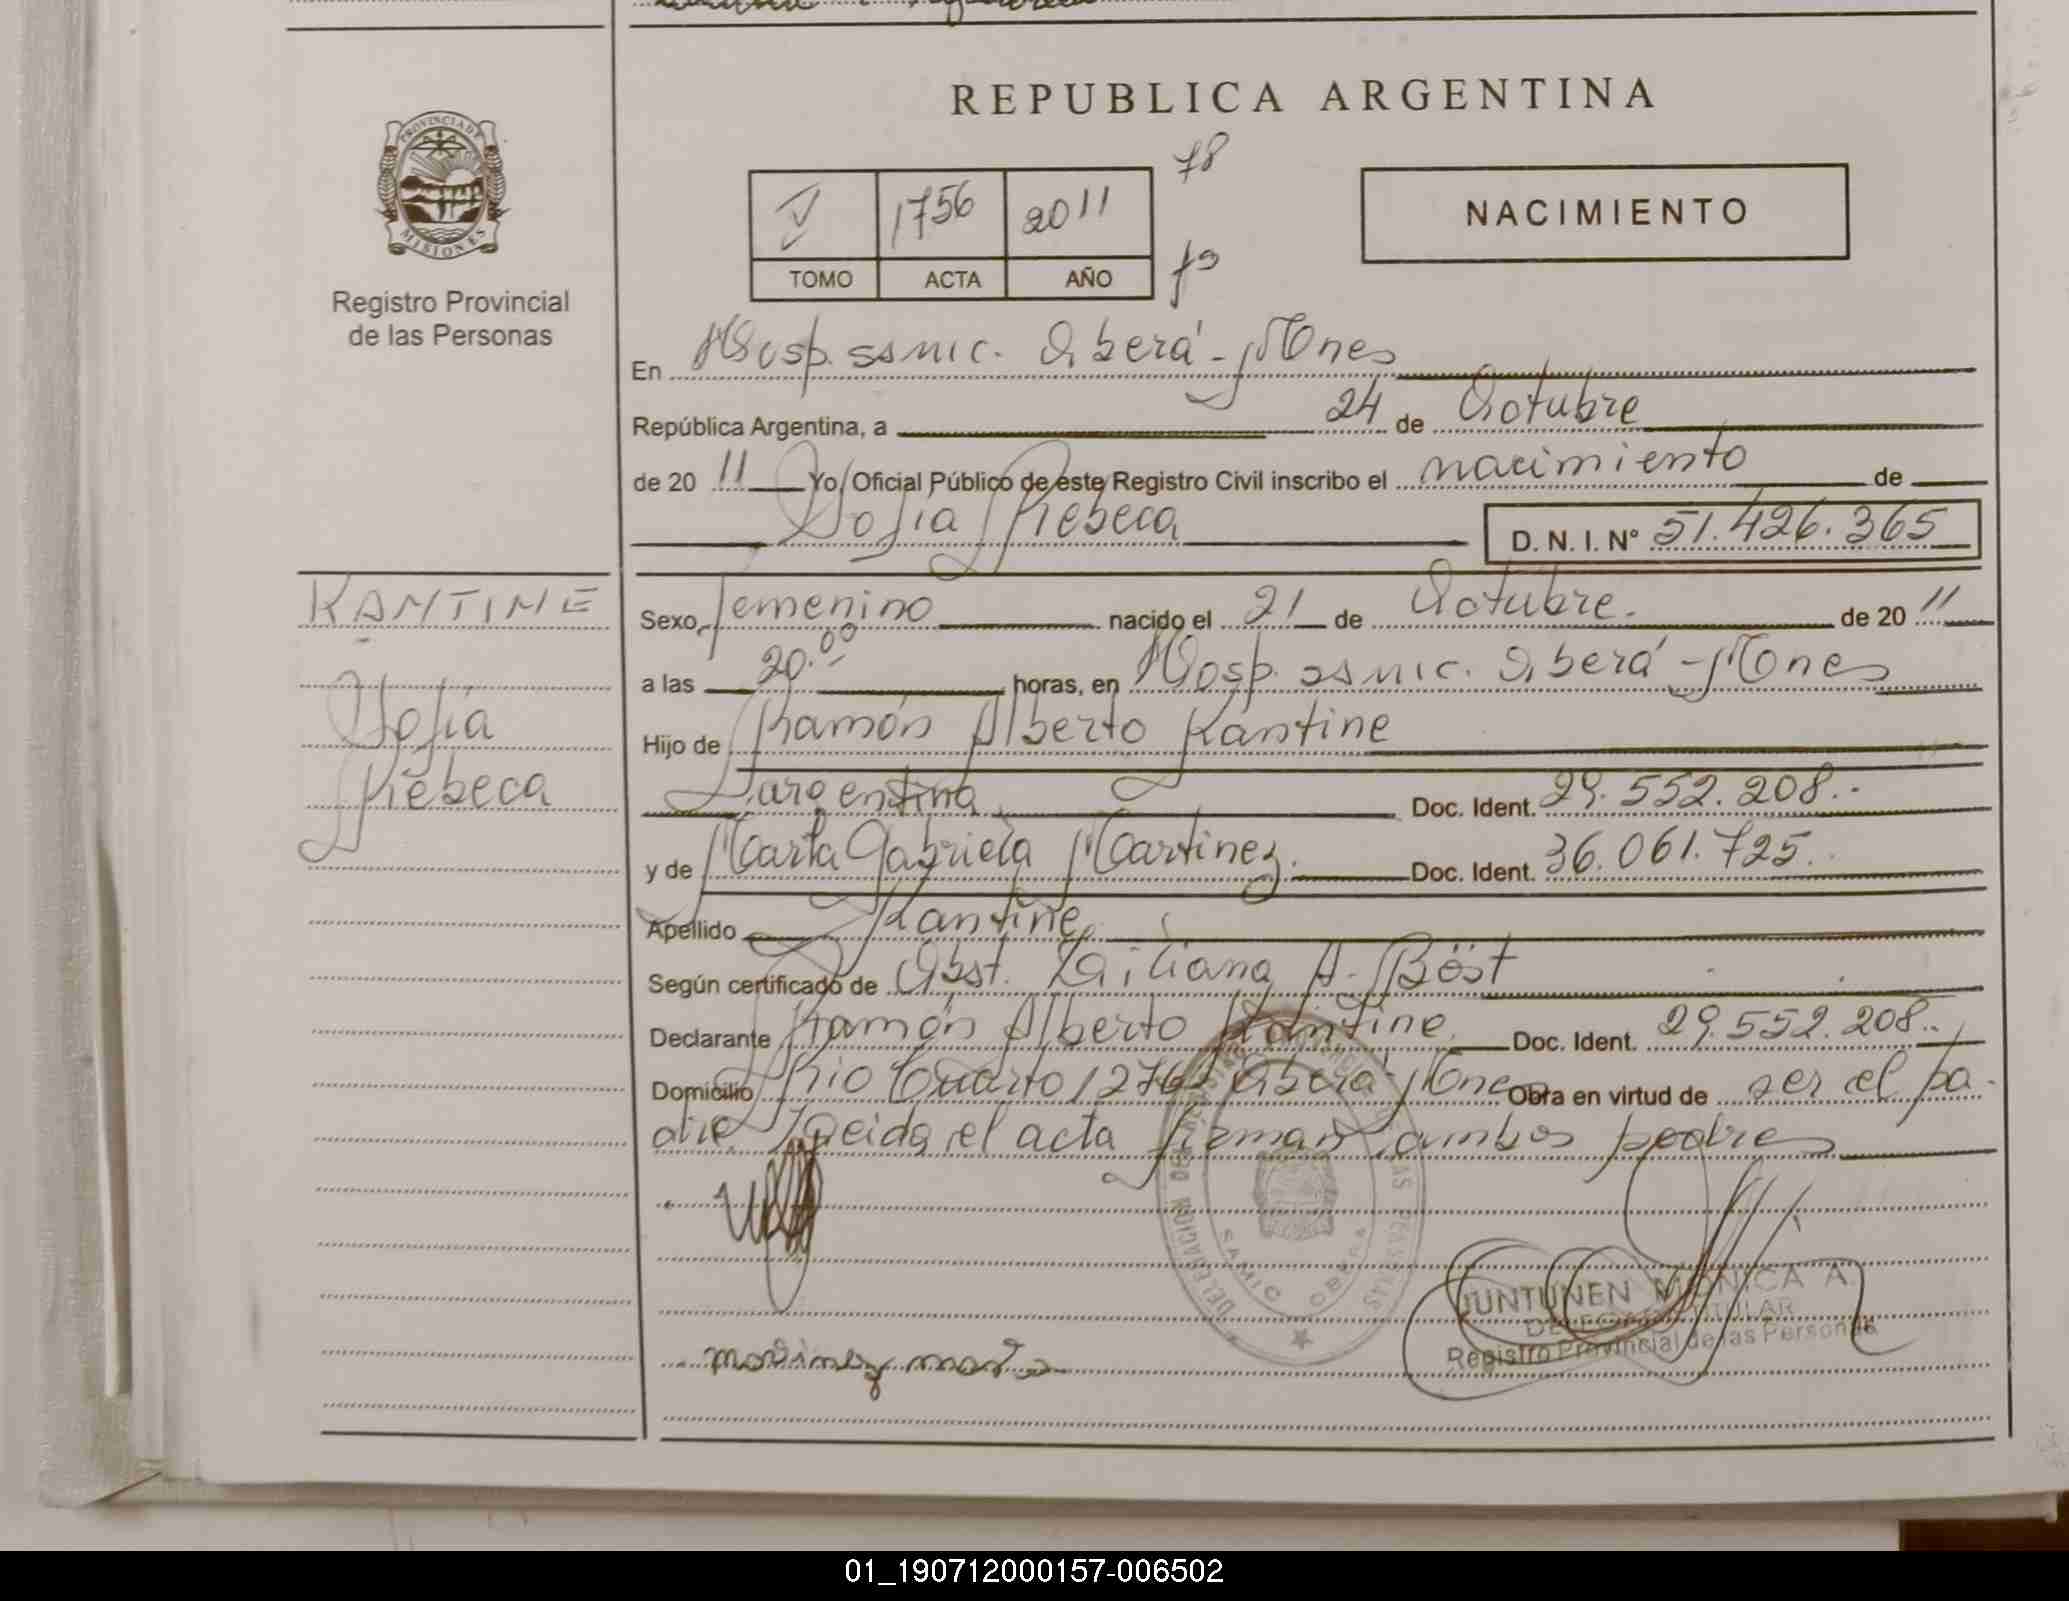 REPUBLICA ARGENTINA
PROVINCIA DE
MISIONES
Registro Provincial
de las Personas
V 1756 2011
TOMO ACTA AÑO
78
NACIMIENTO
En Hosp. SSMIC. Oberá - Mnes
República Argentina, a 24 de Octubre
de 20 11 Yo, Oficial Público de este Registro Civil inscribo el nacimiento de
Sofia Rebeca D. N. I. N° 51.426.365
KANTINE
Sofia
Rebeca
Sexo femenino nacido el 21 de Octubre. de 20 11
a las 20.00 horas, en Hosp. SSMIC. Oberá - Mnes
Hijo de Ramón Alberto Kantine
argentina Doc. Ident. 29.552.208.-
y de Marta Gabriela Martinez. Doc. Ident. 36.061.725.
Apellido Kantine
Según certificado de Obst. Liliana A. Böst
Declarante Ramón Alberto Kantine Doc. Ident. 29.552.208.
Domicilio Rio Cuarto 1276 Oberá Mnes Obra en virtud de ser el pa-
dre. Leida el acta firman ambos padres
DELEGACION DEL REGISTRO PROVINCIAL DE LAS PERSONAS
SAMIC OBERA
JUNTUNEN MONICA A.
DELEGADA TITULAR
Registro Provincial de las Personas
martinez marta
01_190712000157-006502